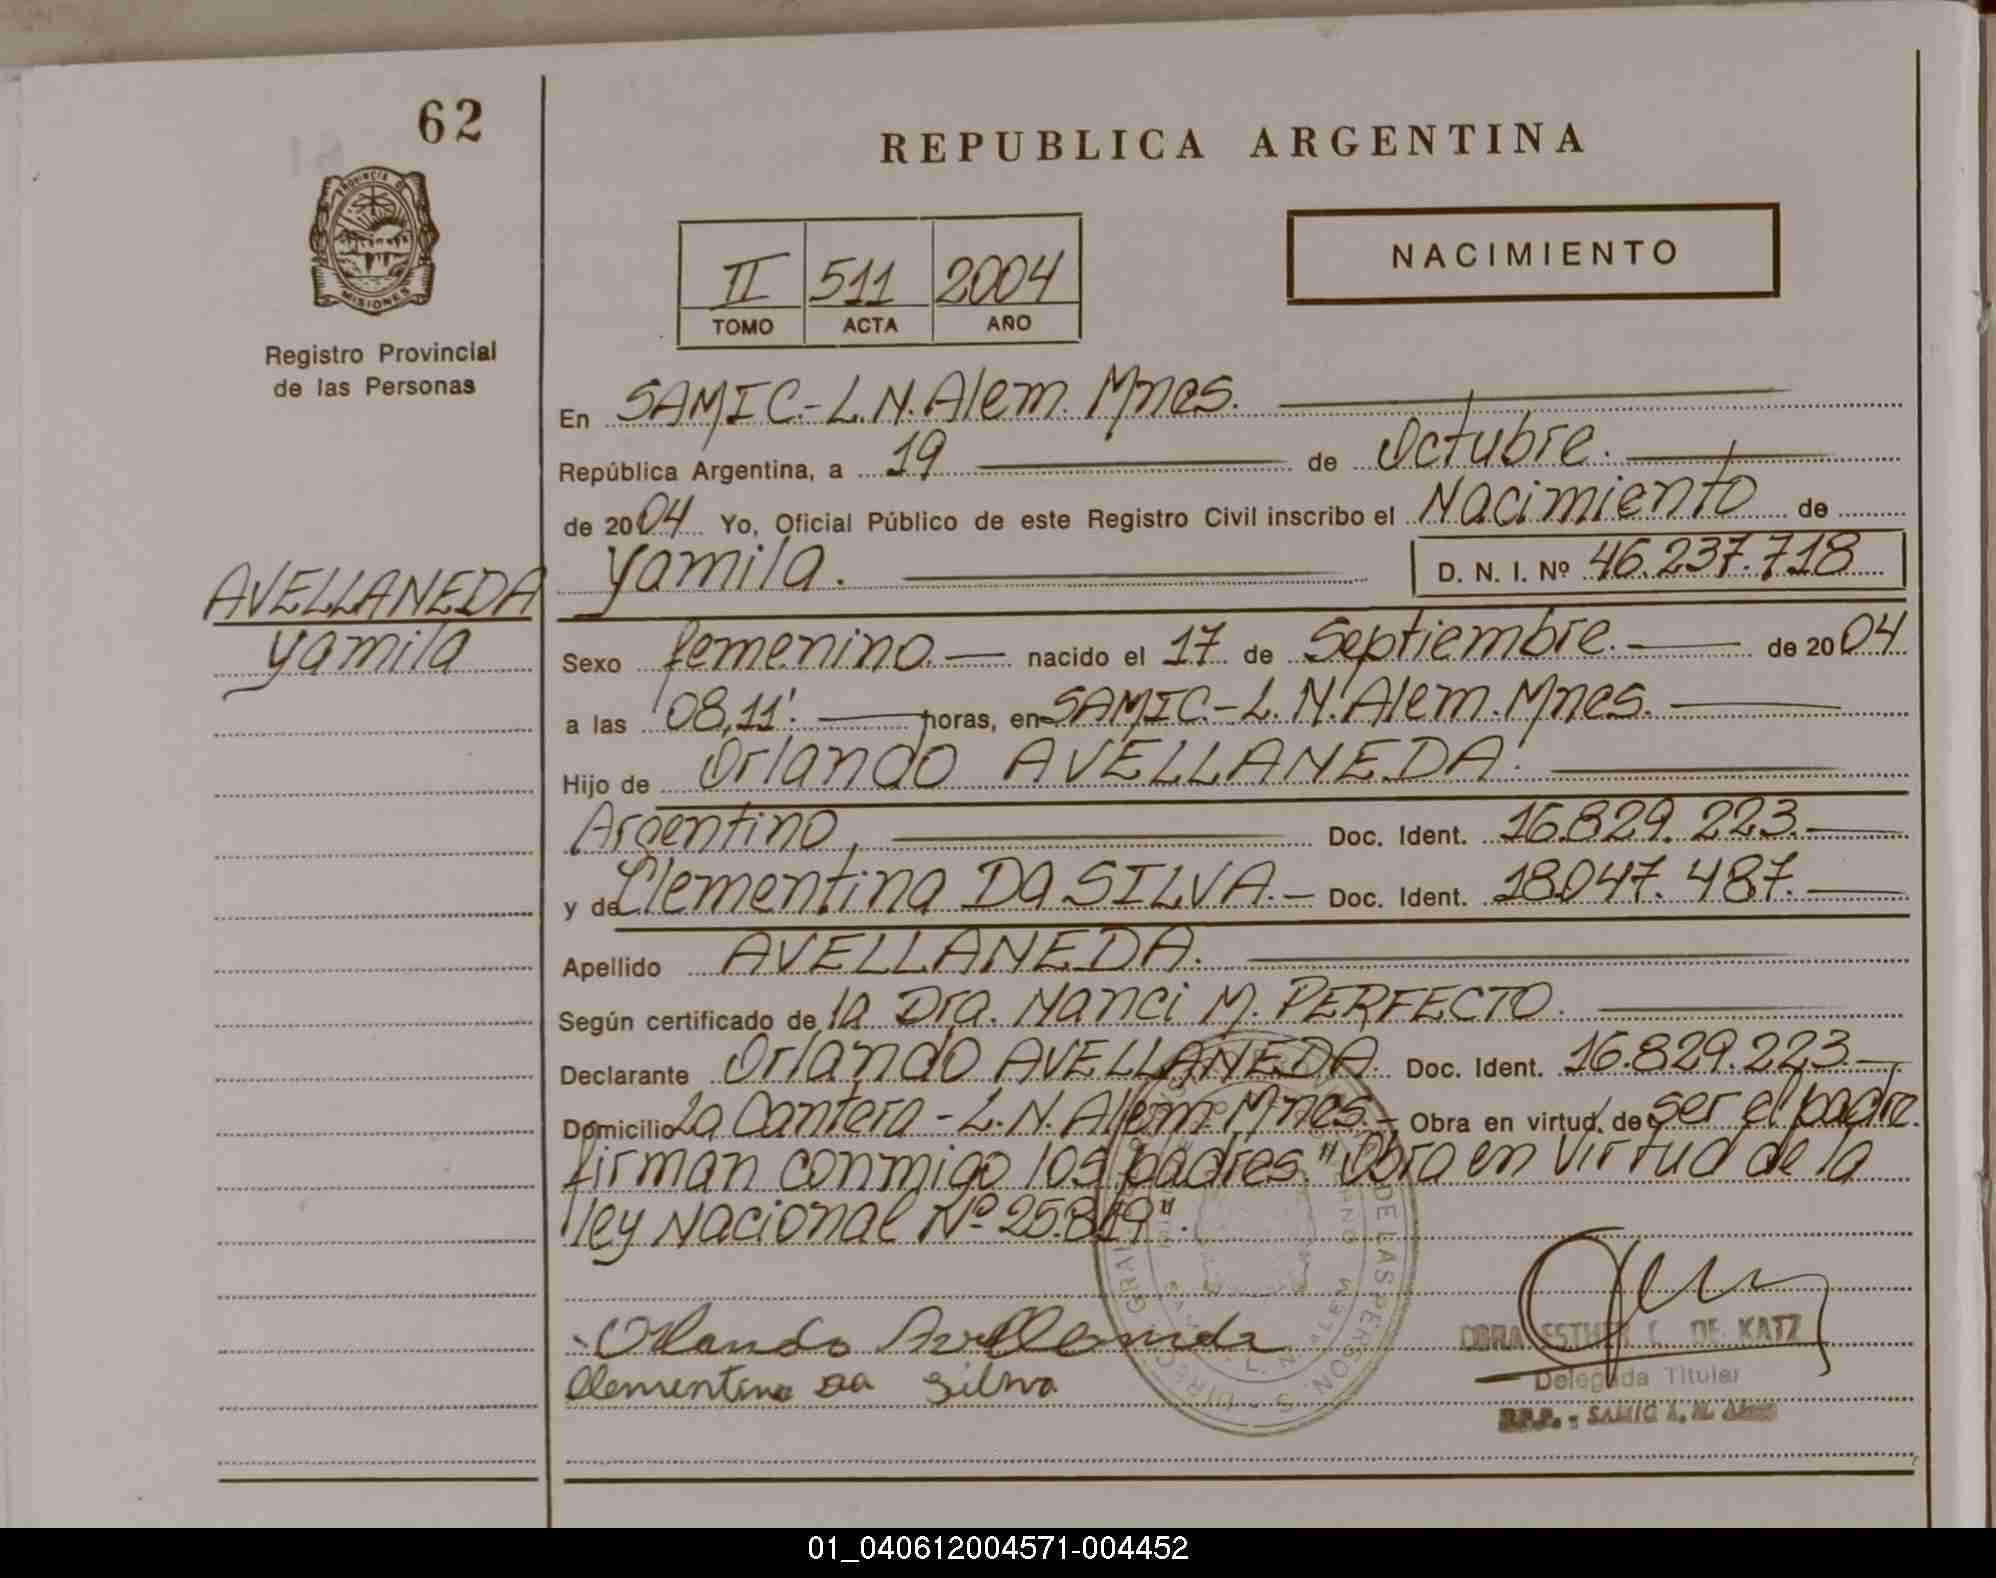 62
REPUBLICA ARGENTINA
PROVINCIA DE
MISIONES
Registro Provincial
de las Personas
II 511 2004
TOMO ACTA AÑO
NACIMIENTO
En SAMIC.-L.N.Alem. Mnes.
República Argentina, a 19 de Octubre.
de 2004 Yo, Oficial Público de este Registro Civil inscribo el Nacimiento de
Yamila. D. N. I. Nº 46.237.718
AVELLANEDA
Yamila
Sexo femenino.- nacido el 17 de Septiembre. de 2004
a las 08,11'. horas, en SAMIC.-L.N.Alem.Mnes.
Hijo de Orlando AVELLANEDA.
Argentino, Doc. Ident. 16.829.223.-
y de Clementina Da SILVA.- Doc. Ident. 18.047.487.-
Apellido AVELLANEDA.
Según certificado de la Dra. Nanci M. PERFECTO.
Declarante Orlando AVELLANEDA. Doc. Ident. 16.829.223.-
Domicilio La Cantera - L.N. Alem. Mnes.- Obra en virtud de ser el padre.
firman conmigo los padres. "Obra en Virtud de la
ley Nacional Nº 25.819".
Orlando Avellaneda
Clementina Da Silva
DORA ESTHER C. DE KATZ
Delegada Titular
R.P.P. - SAMIC L. N. Alem
01_040612004571-004452